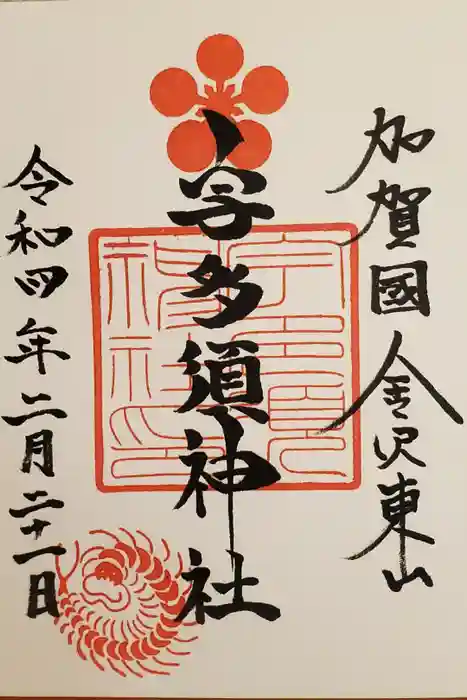 加賀國金沢東山
宇多須神社
令和四年二月二十一日